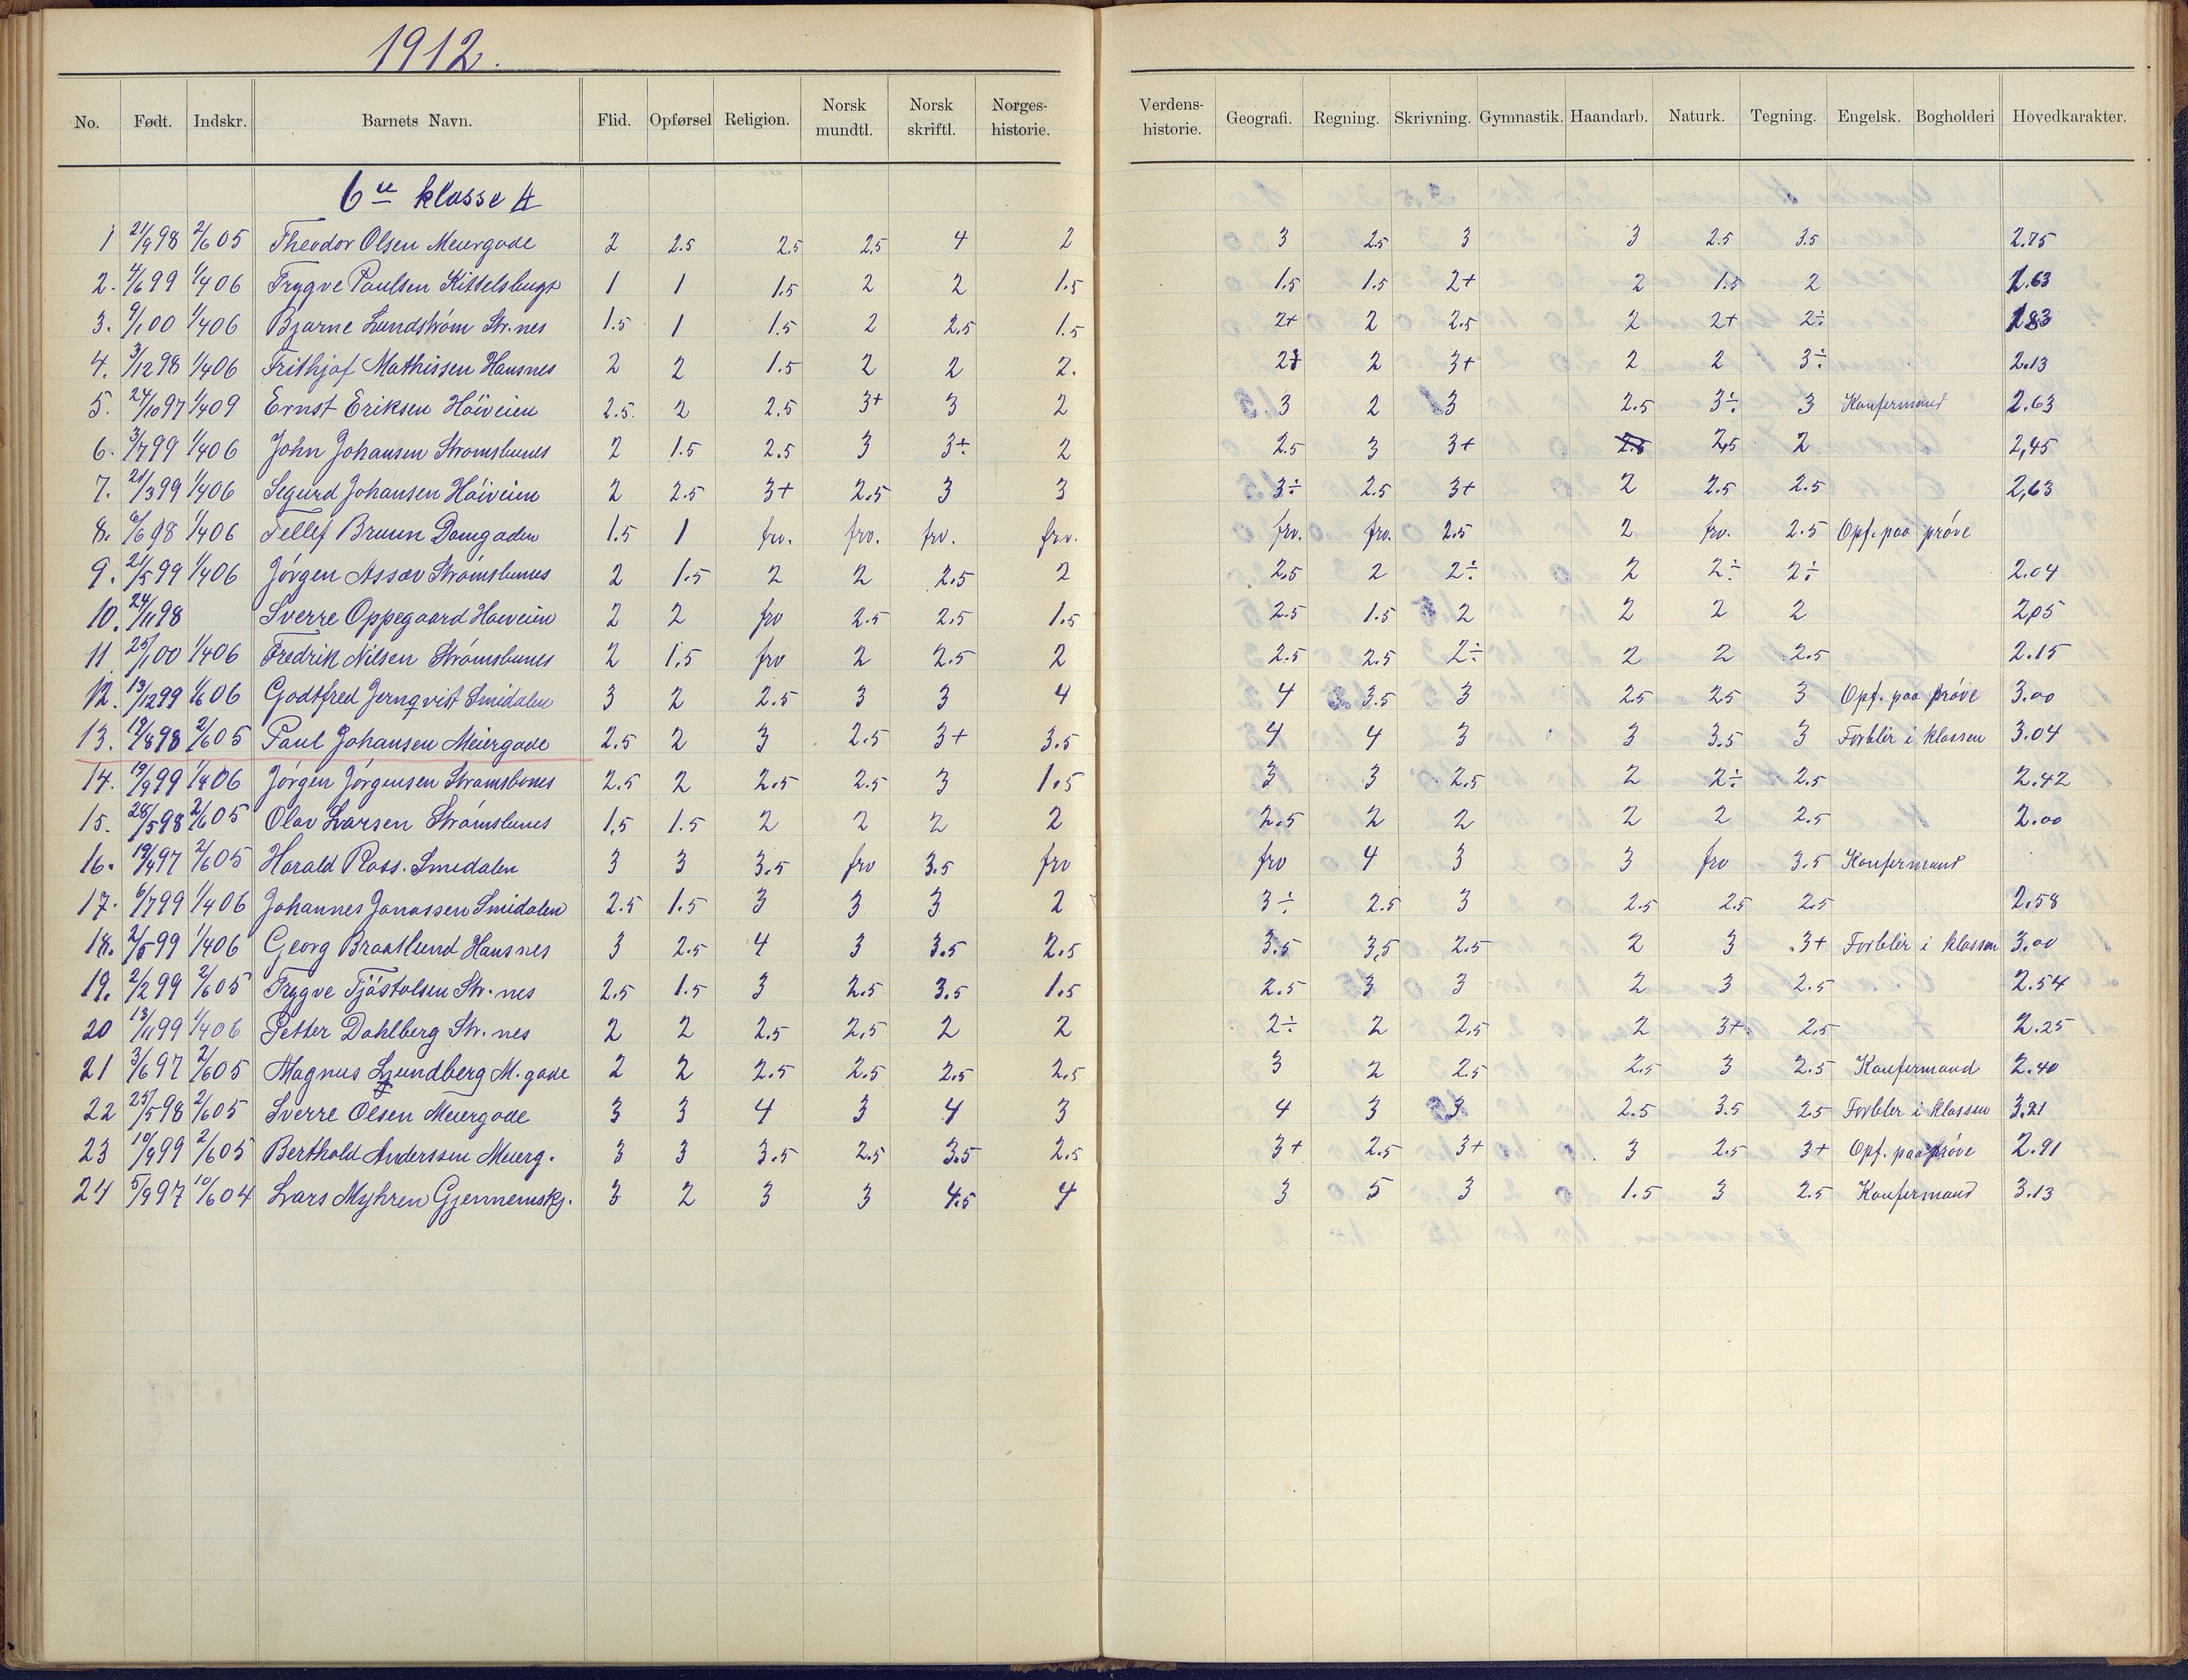 1912.
No. Født. Indskr. Barnets Navn. Flid. Opførsel Religion. Norsk mundtl. Norsk skriftl. Norges-historie. Verdens-historie. Geografi. Regning. Skrivning. Gymnastik. Haandarb. Naturk. Tegning. Engelsk. Bogholderi Hovedkarakter.
6te klasse A
1 21/9 98 2/6 05 Theodor Olsen Meiergade 2 2.5 2.5 2.5 4 2 3 2.5 3 3 2.5 3.5 2.75
2. 4/6 99 1/4 06 Trygve Paulsen Kittelsbugt 1 1 1.5 2 2 1.5 1.5 1.5 2+ 2 1.5 2 1.63
3. 9/1 00 1/4 06 Bjarne Lundstrøm Str.nes 1.5 1 1.5 2 2.5 1.5 2+ 2 2.5 2 2+ 2÷ 1.83
4. 3/12 98 1/4 06 Frithjof Mathissen Hansnes 2 2 1.5 2 2 2. 2 2 3+ 2 2 3÷ 2.13
5. 24/10 97 1/4 09 Ernst Eriksen Höiveien 2.5. 2 2.5 3+ 3 2 3 2 3 2.5 3÷ 3 Konfermand 2.63
6. 3/7 99 1/4 06 John Johansen Strømsbunes 2 1.5 2.5 3 3÷ 2 2.5 3 3+ 2.5 2 2,45
7. 21/3 99 1/4 06 Sigurd Johansen Höiveien 2 2.5 3+ 2.5 3 3 3÷ 2.5 3+ 2 2.5 2.5 2,63
8. 6/6 98 1/4 06 Tellef Bruun Damgaden 1.5 1 frv. frv. frv. frv. frv. frv. 2.5 2 frv. 2.5 Opf. paa pröve
9. 21/5 99 1/4 06 Jörgen Assev Strömsbunes 2 1.5 2 2 2.5 2 2.5 2 2÷ 2 2÷ 2÷ 2.04
10. 24/11 98 Sverre Oppegaard Høiveien 2 2 frv 2.5 2.5 1.5 2.5 1.5 2 2 2 2 2,05
11 25/1 00 1/4 06 Fredrik Nilsen Strömsbunes 2 1.5 frv 2 2.5 2 2.5 2.5 2÷ 2 2 2.5 2.15
12. 13/12 99 1/6 06 Godtfred Jernqvist Smidalen 3 2 2.5 3 3 4 4 3.5 3 2.5 2.5 3 Opf. paa pröve 3.00
13. 19/8 98 2/6 05 Paul Johansen Meiergade 2.5 2 3 2.5 3+ 3.5 4 4 3 3 3.5 3 Forblir i klassen 3.04
14. 19/9 99 1/4 06 Jörgen Jörgensen Strømsbunes 2.5 2 2.5 2.5 3 1.5 3 3 2.5 2 2÷ 2.5 2.42
15. 28/5 98 2/6 05 Olav Larsen Strömsbunes 1,5 1.5 2 2 2 2 2.5 2 2 2 2 2.5 2.00
16. 19/4 97 2/6 05 Harald Ross. Smedalen 3 3 3.5 frv 3.5 frv frv 4 3 3 frv 3.5 Konfermand
17. 6/7 99 1/4 06 Johannes Jonassen Smidalen 2.5 1.5 3 3 3 2 3÷ 2.5 3 2.5 2.5 2.5 2.58
18. 2/5 99 1/4 06 Georg Braatlund Hansnes 3 2.5 4 3 3.5 2.5 3.5 3,5 2.5 2 3 3+ Forblir i klassen 3.00
19. 2/2 99 2/6 05 Trygve Tjöstolsen Str.nes 2.5 1.5 3 2.5 3.5 1.5 2.5 3 3 2 3 2.5 2.54
20 13/11 99 1/4 06 Petter Dahlberg Str.nes 2 2 2.5 2,5 2 2 2÷ 2 2,5 2 3+ 2.5 2.25
21 3/6 97 2/6 05 Magnus Lundberg M.gade 2 2 2.5 2.5 2.5 2.5 3 2 2.5 2.5 3 2.5 Konfermand 2.40
22 25/5 98 2/6 05 Sverre Olsen Meiergade 3 3 4 3 4 3 4 3 3 2.5 3.5 2.5 Forblir i klassen 3.21
23 10/9 99 2/6 05 Berthold Anderssen Meierg. 3 3 3.5 2.5 3.5 2.5 3+ 2.5 3+ 3 2.5 3+ Opf. paa pröve 2.91
24 5/9 97 10/6 04 Lars Myhren Gjennemskj. 3 2 3 3 4.5 4 3 5 3 1.5 3 2.5 Konfermand 3.13